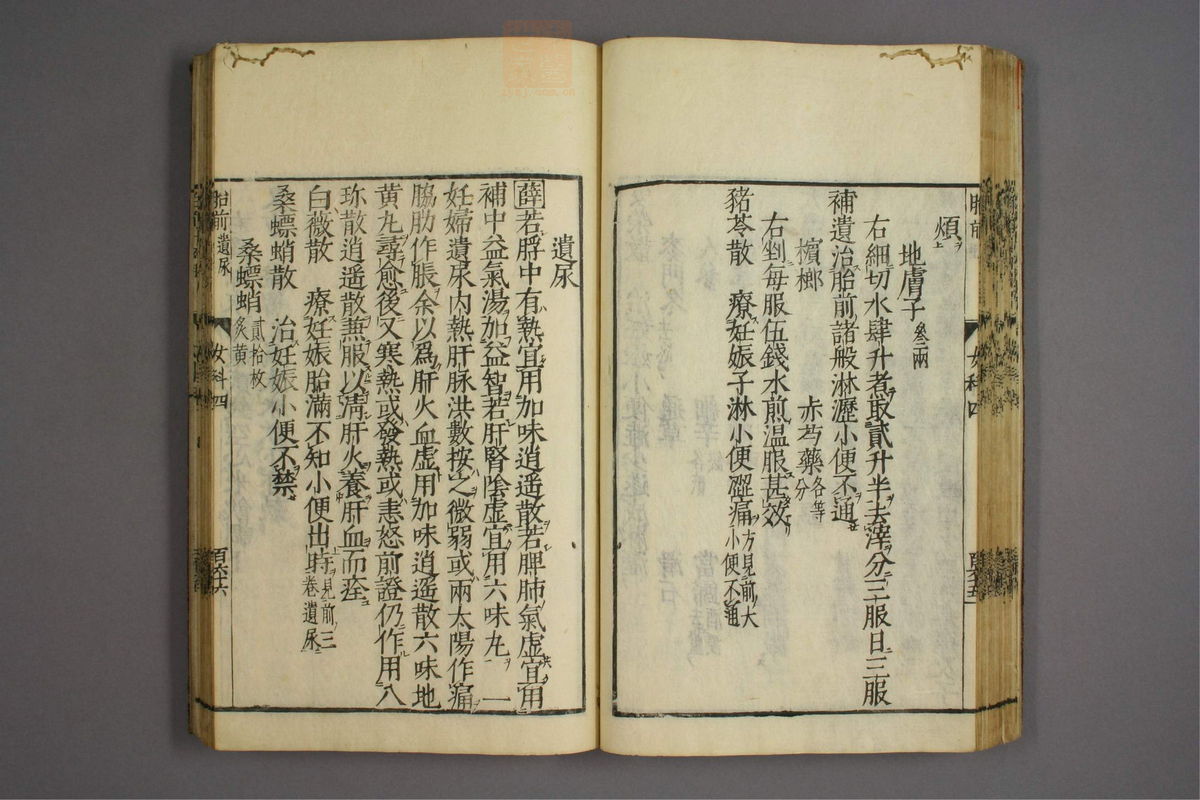 煩
地膚子 叄兩
右細切水肆升煮取貳升半去滓分三服日三服
補遺治胎前諸般淋瀝小便不通
檳榔 赤芍藥 各等分
右剉每服伍錢水煎溫服甚效
豬苓散 療妊娠子淋小便澀痛 方見前大小便不通
遺尿
薛若脬中有熱宜用加味逍遙散若脾肺氣虛宜用
補中益氣湯加益智若肝腎陰虛宜用六味丸 一
妊婦遺尿內熱肝脉洪數按之微弱或兩太陽作痛
脇肋作脹余以爲肝火血虛用加味逍遙散六味地
黃丸尋愈後又寒熱或發熱或恚怒前證仍作用八
珍散逍遙散兼服以清肝火養肝血而痊
白薇散 療妊娠胎滿不知小便出時 方見前三卷遺尿
桑螵蛸散 治妊娠小便不禁
桑螵蛸 貳拾枚炙黃
胎前遺尿 女科四 百六十六